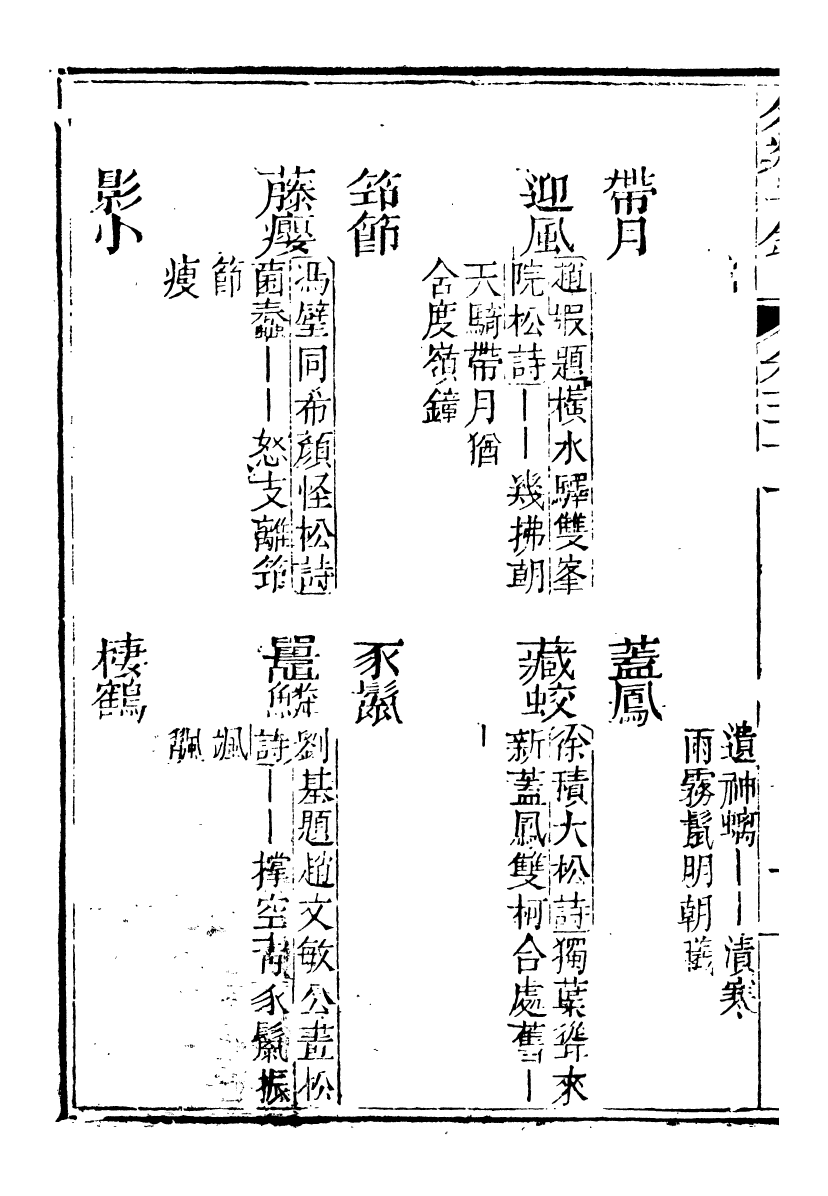 帶月
迎風
趙嘏題橫水驛雙峯
院松詩｜｜幾拂朝
天騎帶月猶
含度嶺鐘
筇節
藤癭
馮璧同希顔怪松詩
菌蠢｜｜怒支離筇
節
瘦
影小
遺神螭｜｜漬寒
雨霧鬛明朝
蓋鳳
藏蛟
徐積大松詩獨葉聳來
新蓋鳳雙柯合處舊｜
｜
豕鬛
鼉鱗
劉基題趙文敏公畫松
詩｜｜撑空青豕鬛振
颯
棲鶴